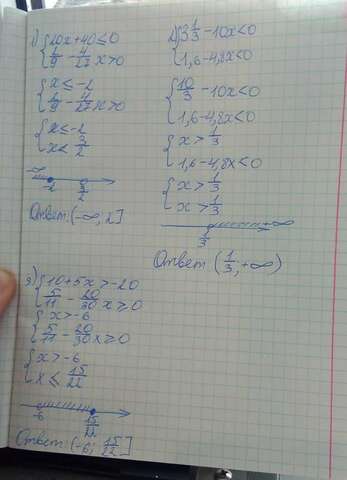 1) { 20x+40≤0
{ 6/9 - 4/27 x>0
{ x≤-2
{ 6/9 - 4/27 x>0
{ x≤-2
{ x< 3/2
-2 3/2
Ответ: (-∞, 2]
2) { 3 1/3 - 10x<0
{ 1,6-4,8x<0
{ 10/3 - 10x<0
{ 1,6-4,8x<0
{ x> 1/3
{ 1,6-4,8x<0
{ x> 1/3
{ x> 1/3
1/3 +∞
Ответ (1/3; +∞)
3) { 10+5x>-20
{ 5/11 - 20/30 x≥0
{ x>-6
{ 5/11 - 20/30 x≥0
{ x>-6
{ x≤ 15/22
-6 15/22
Ответ: (-6; 15/22]